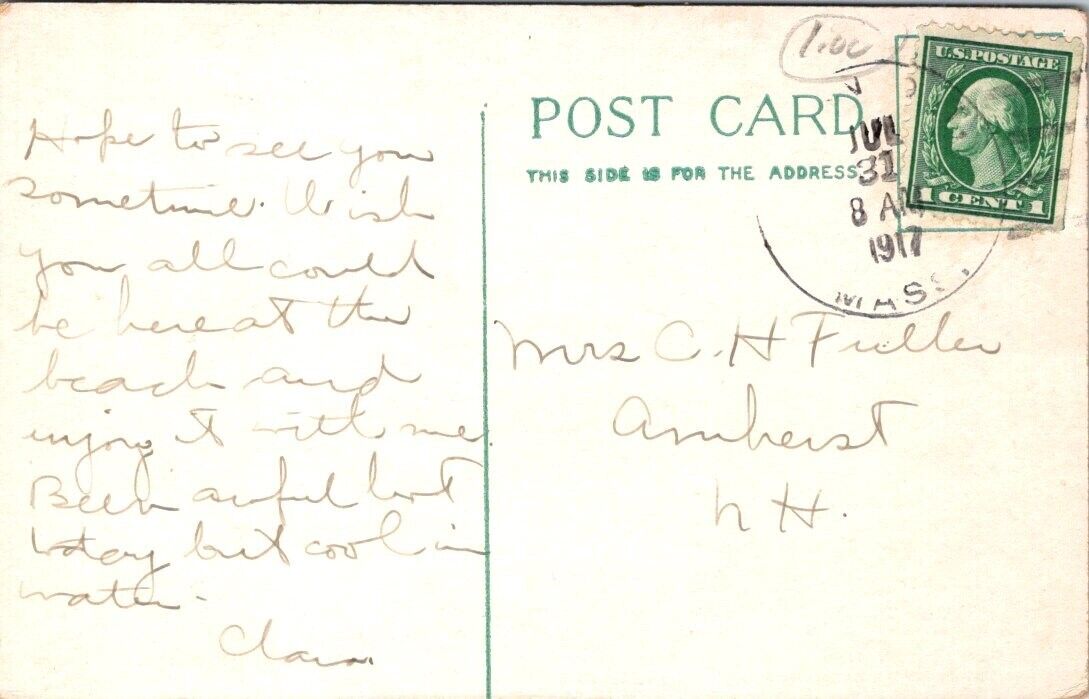 Hope to see you
sometime. Wish
you all could
be here at the
beach and
injoy it with me
Been awful hot
today but cool in
water.
Clara.
1.00
POST CARD
THIS SIDE IS FOR THE ADDRESS
JUL
31
8 AM
1917
MASS.
U.S. POSTAGE
1 CENT 1
Mrs C. H Fuller
Amherst
N H.